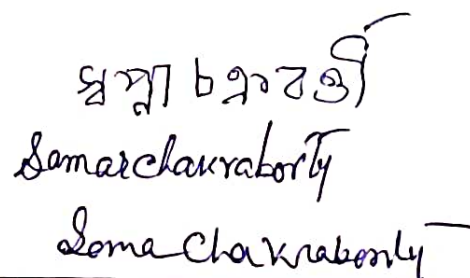 স্বপ্না চক্রবর্ত্তী
Samar Chakraborty
Soma Chakraborty